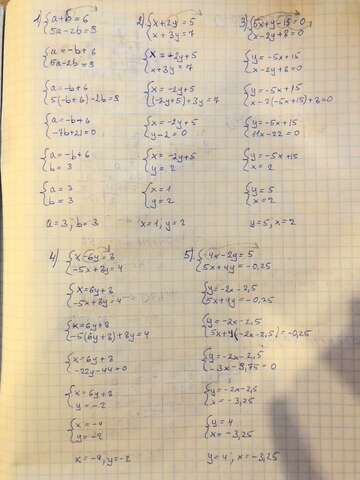 1) {a+b=6
5a-2b=9
{a=-b+6
5a-2b=9
{a=-b+6
5(-b+6)-2b=9
{a=-b+6
-7b+21=0
{a=-b+6
b=3
{a=3
b=3
a=3; b=3
2) {x+2y=5
x+3y=7
{x=-2y+5
x+3y=7
{x=-2y+5
(-2y+5)+3y=7
{x=-2y+5
y-2=0
{x=-2y+5
y=2
{x=1
y=2
x=1, y=2
3) {5x+y-15=0
x-2y+8=0
{y=-5x+15
x-2y+8=0
{y=-5x+15
x-2(-5x+15)+8=0
{y=-5x+15
11x-22=0
{y=-5x+15
x=2
{y=5
x=2
y=5, x=2
4) {x-6y=8
-5x+8y=4
{x=6y+8
-5x+8y=4
{x=6y+8
-5(6y+8)+8y=4
{x=6y+8
-22y-44=0
{x=6y+8
y=-2
{x=-4
y=-2
x=-4, y=-2
5) {-4x-2y=5
5x+4y=-0,25
{y=-2x-2,5
5x+4y=-0,25
{y=-2x-2,5
5x+4(-2x-2,5)=-0,25
{y=-2x-2,5
-3x-9,75=0
{y=-2x-2,5
x=-3,25
{y=4
x=-3,25
y=4, x=-3,25